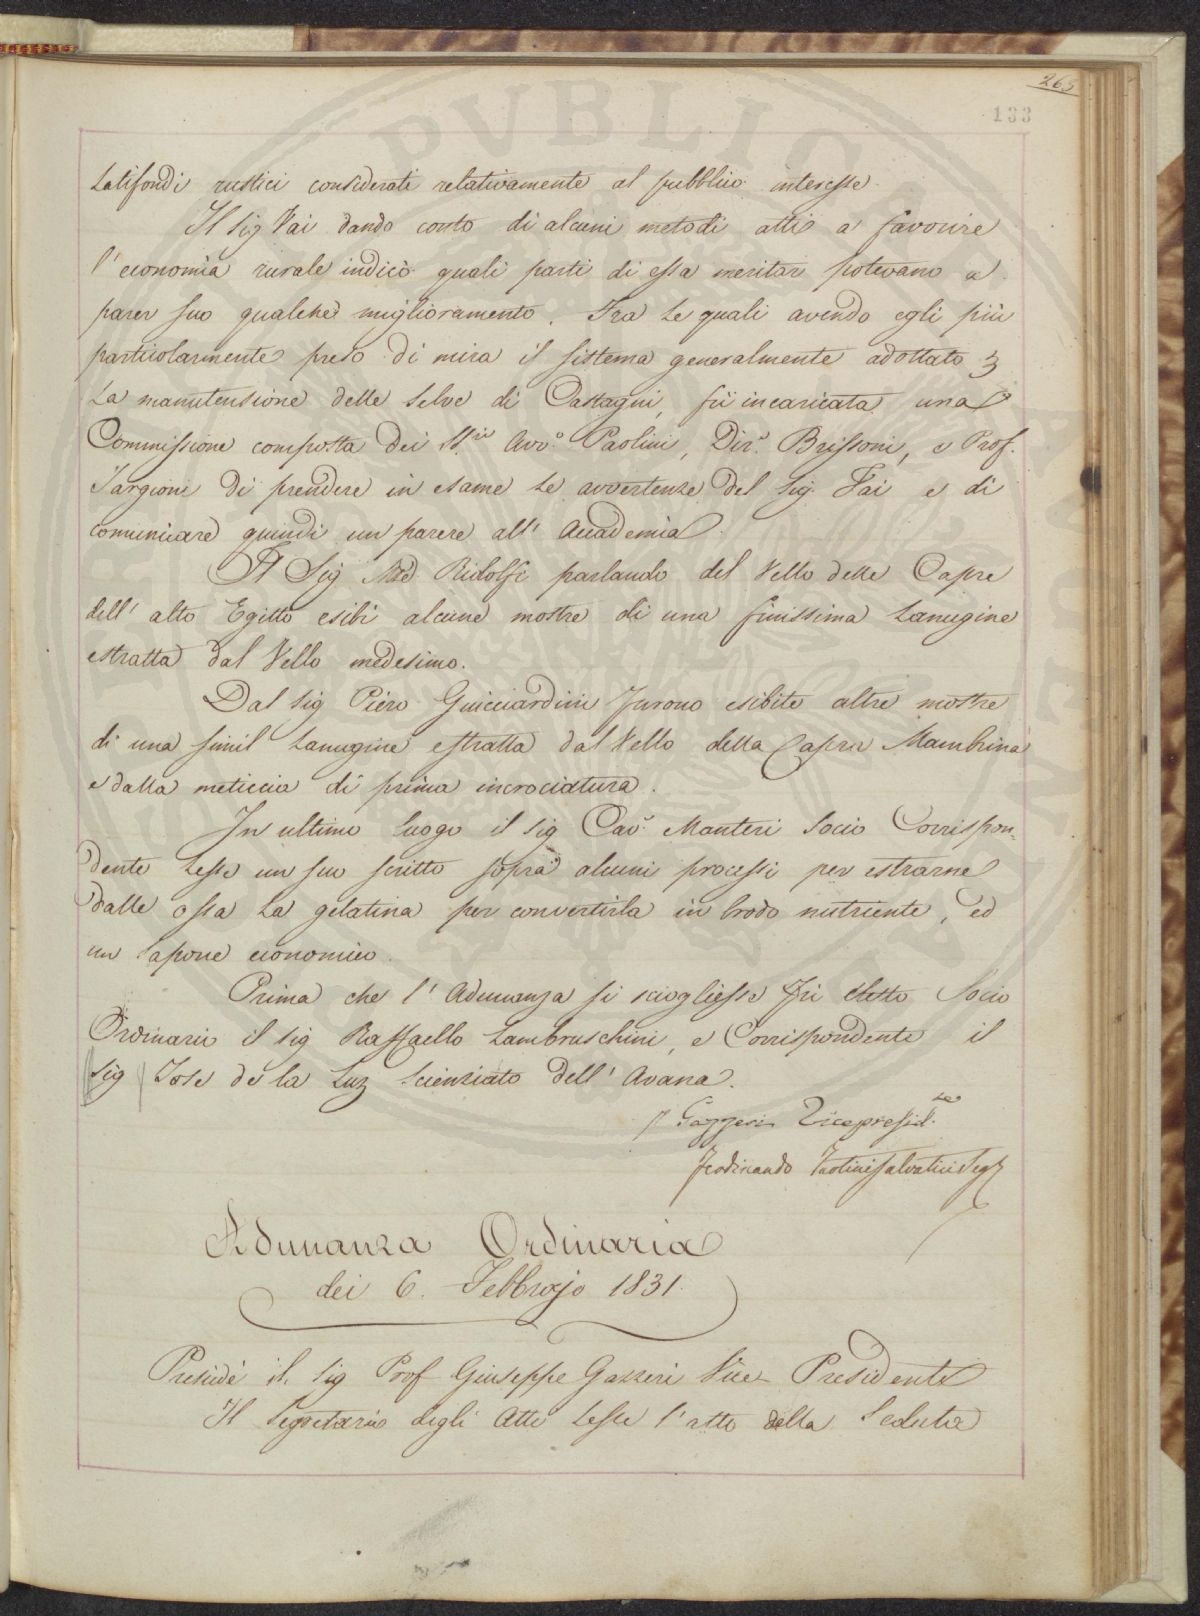 265
133
Latifondi rustici considerati relativamente al pubblico interesse.
Il Sig Vai dando conto di alcuni metodi atti a favorire
l'economia rurale indicò quali parti di essa meritar potevano a
parer suo qualche miglioramento. Tra le quali avendo egli più
particolarmente preso di mira il sistema generalmente adottato
La manutensione delle selve di Castagni, fù incaricata una
Commissione composta dei Avv.º Paolini, Dir.e Brissoni, e Prof.
Targioni di prendere in esame le avvertenze del Sig. Fai e di
comunicare quindi un parere all' Accademia.
Il Sig Ridolfi parlando del Vello delle Capre
dell' alto Egitto esibì alcune mostre di una finissima Lanugine
estratta dal Vello medesimo.
Dal Sig Piero Guicciardini furono esibite altre mostre
di una simil Lanugine estratta dal Vello della Capra Mambrina
e dalla meticcia di prima incrociatura.
In ultimo luogo il Sig Cav.e Manteri Socio Corrispon-
dente Lesse un suo scritto sopra alcuni processi per estrarne
dalle ossa la gelatina per convertirla in brodo nutriente, ed
un Sapone economico.
Prima che l' Adunanza si sciogliesse fù eletto Socio
Ordinario il Sig Raffaello Lambruschini, e Corrispondente il
Sig Jose de la Luz Scienziato dell' Avana.
Gazzeri Vicepresid.te
Ferdinando Paolini Salvatici Seg
Adunanza Ordinaria
dei 6. Febbrajo 1831.
Presidè il Sig Prof Giuseppe Gazzeri Vice Presidente
Il Segretario degli Atti Lesse l'atto della Seduta